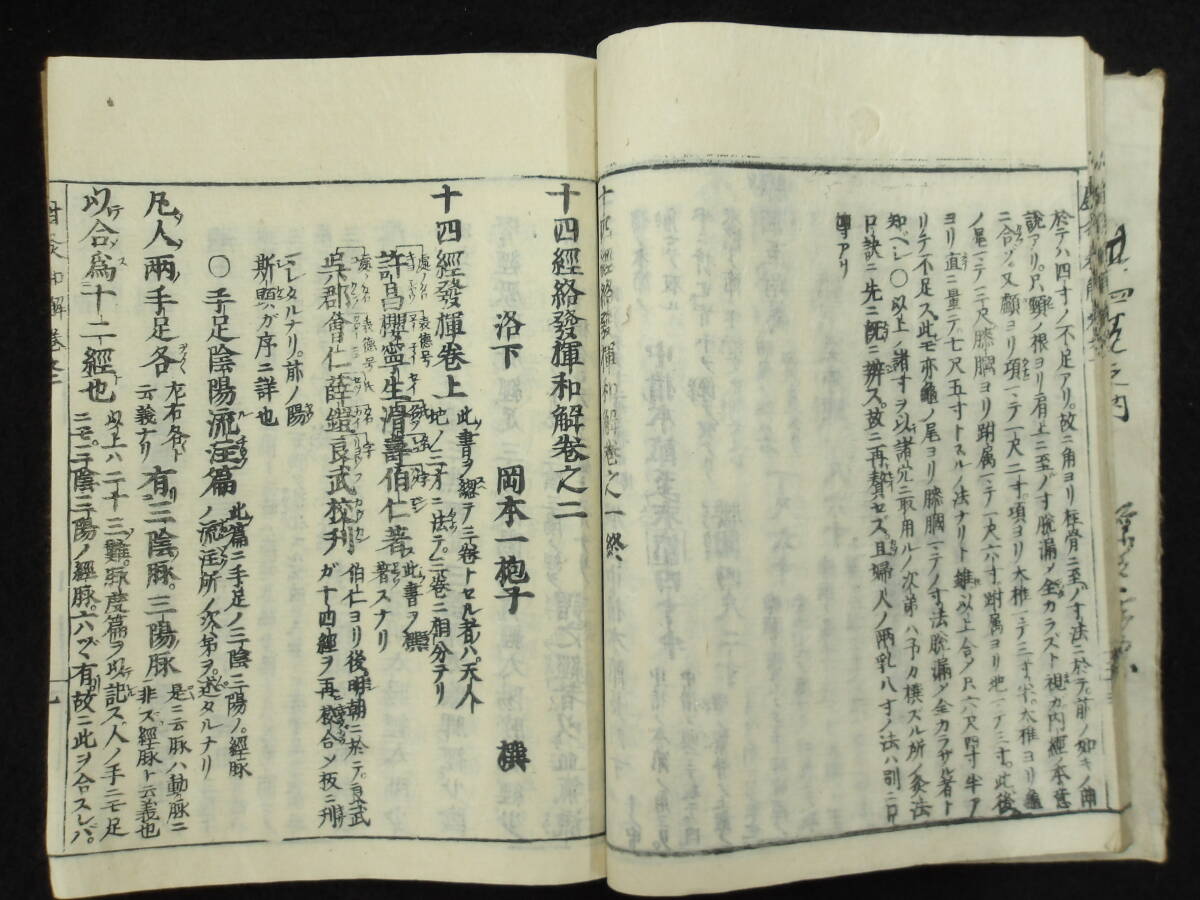 於テハ四寸ノ不足アリ。故ニ角ヨリ柱骨ニ至ノ寸法ニ於テ。前ノ如キノ両
説アリ。只頸ノ根ヨリ肩上ニ至ノ寸脱漏シ全カラズト視ガ。内經ノ本意
ニ合シ。又顱ヨリ項マデ一尺二寸。項ヨリ大椎マデ三寸半。大椎ヨリ亀
ノ尾マデ三尺膝膕ヨリ跗属マデ一尺六寸。跗属ヨリ地マデ三寸。此後
ヨリ直ニ量テ七尺五寸トスルノ法ナリト雖。以上合メ只六尺四寸半ア
リテ不足ス。此モ亦亀ノ尾ヨリ膝膕マデノ寸法脱漏シ全カラザル者ト
知ベシ〇以上ノ諸寸ヲ以諸穴ニ取用ルノ次第ハ予カ撰ズル所ノ灸法
口訣ニ先ニ既ニ辨ズ。故ニ再贅セズ。且婦人ノ両乳八寸ノ法ハ別ニ口
傳アリ
十四經絡發揮和解卷之一終
十四經絡發揮和解卷之二
洛下 岡本一抱子 撰
十四經發揮卷上 此書ヲ總テ三卷トセル者ハ。天人
地ノ三才ニ法テ。三卷ニ相分テリ
許昌櫻寧生滑壽伯仁著 此書ヲ
著スナリ
呉郡會仁薛鎧良武校刋 伯仁ヨリ後。明朝ニ於テ。良武
ガ十四經ヲ再校合シ板ニ刋
レタルナリ。前ノ陽
斯興ガ序ニ詳也
〇手足陰陽流注篇 此篇ニ手足ノ三陰三陽ノ。經脉
ノ流注所ノ次第ヲ述タルナリ
凡人兩手足各 左右各ト
云義ナリ 有三陰脉。三陽脉 是ニ云脉ハ動脉ニ
非ズ經脉ト云義也
以合爲十二經也 以上ハ二十三難。脉度篇ヲ以記ス。人ノ手ニモ足
ニモ。三陰三陽ノ經脉。六ヅヽ有故ニ此ヲ合スレバ。